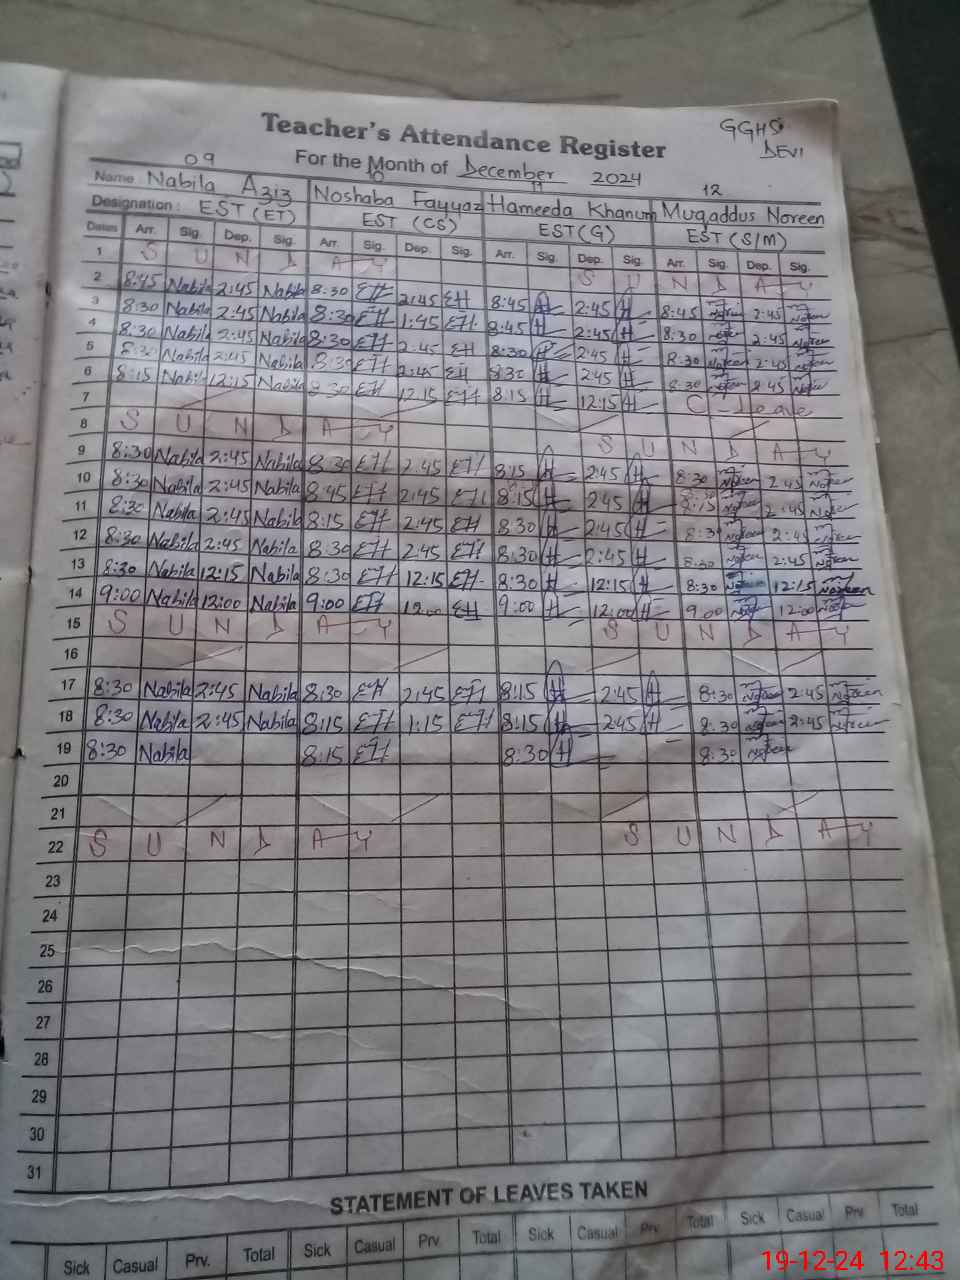 GGHS
DEVI
Teacher's Attendance Register
For the Month of December 2024
09 10 11 12
Name: Nabila Aziz Noshaba Fayyaz Hameeda Khanum Muqaddus Noreen
Designation: EST (ET) EST (CS) EST (G) EST (S/M)
Dates Arr. Sig. Dep. Sig. Arr. Sig. Dep. Sig. Arr. Sig. Dep. Sig. Arr. Sig. Dep. Sig.
1 S U N D A Y S U N D A Y
2 8:45 Nabila 2:45 Nabila 8:30 2:45 8:45 H 2:45 H 8:45 Noreen 2:45 Noreen
3 8:30 Nabila 2:45 Nabila 8:30 1:45 8:45 H 2:45 H 8:30 Noreen 2:45 Noreen
4 8:30 Nabila 2:45 Nabila 8:30 2:45 8:30 H 2:45 H 8:30 Noreen 2:45 Noreen
5 8:30 Nabila 2:45 Nabila 8:30 2:45 8:30 H 2:45 H 8:30 Noreen 2:45 Noreen
6 8:15 Nabila 12:15 Nabila 8:30 12:15 8:15 H 12:15 H C-Leave
7
8 S U N D A Y S U N D A Y
9 8:30 Nabila 2:45 Nabila 8:30 2:45 8:15 H 2:45 H 8:30 Noreen 2:45 Noreen
10 8:30 Nabila 2:45 Nabila 8:45 2:45 8:15 H 2:45 H 8:15 Noreen 2:45 Noreen
11 8:30 Nabila 2:45 Nabila 8:15 2:45 8:30 H 2:45 H 8:30 Noreen 2:45 Noreen
12 8:30 Nabila 2:45 Nabila 8:30 2:45 8:30 H 2:45 H 8:30 Noreen 2:45 Noreen
13 8:30 Nabila 12:15 Nabila 8:30 12:15 8:30 H 12:15 H 8:30 Noreen 12:15 Noreen
14 9:00 Nabila 12:00 Nabila 9:00 12:00 9:00 H 12:00 H 9:00 Noreen 12:00 Noreen
15 S U N D A Y S U N D A Y
16
17 8:30 Nabila 2:45 Nabila 8:30 2:45 8:15 H 2:45 H 8:30 Noreen 2:45 Noreen
18 8:30 Nabila 2:45 Nabila 8:15 1:15 8:15 H 2:45 H 8:30 Noreen 2:45 Noreen
19 8:30 Nabila 8:15 8:30 H 8:30 Noreen
20
21
22 S U N D A Y S U N D A Y
23
24
25
26
27
28
29
30
31
STATEMENT OF LEAVES TAKEN
Sick Casual Prv. Total Sick Casual Prv. Total Sick Casual Prv. Total Sick Casual Prv. Total
19-12-24 12:43